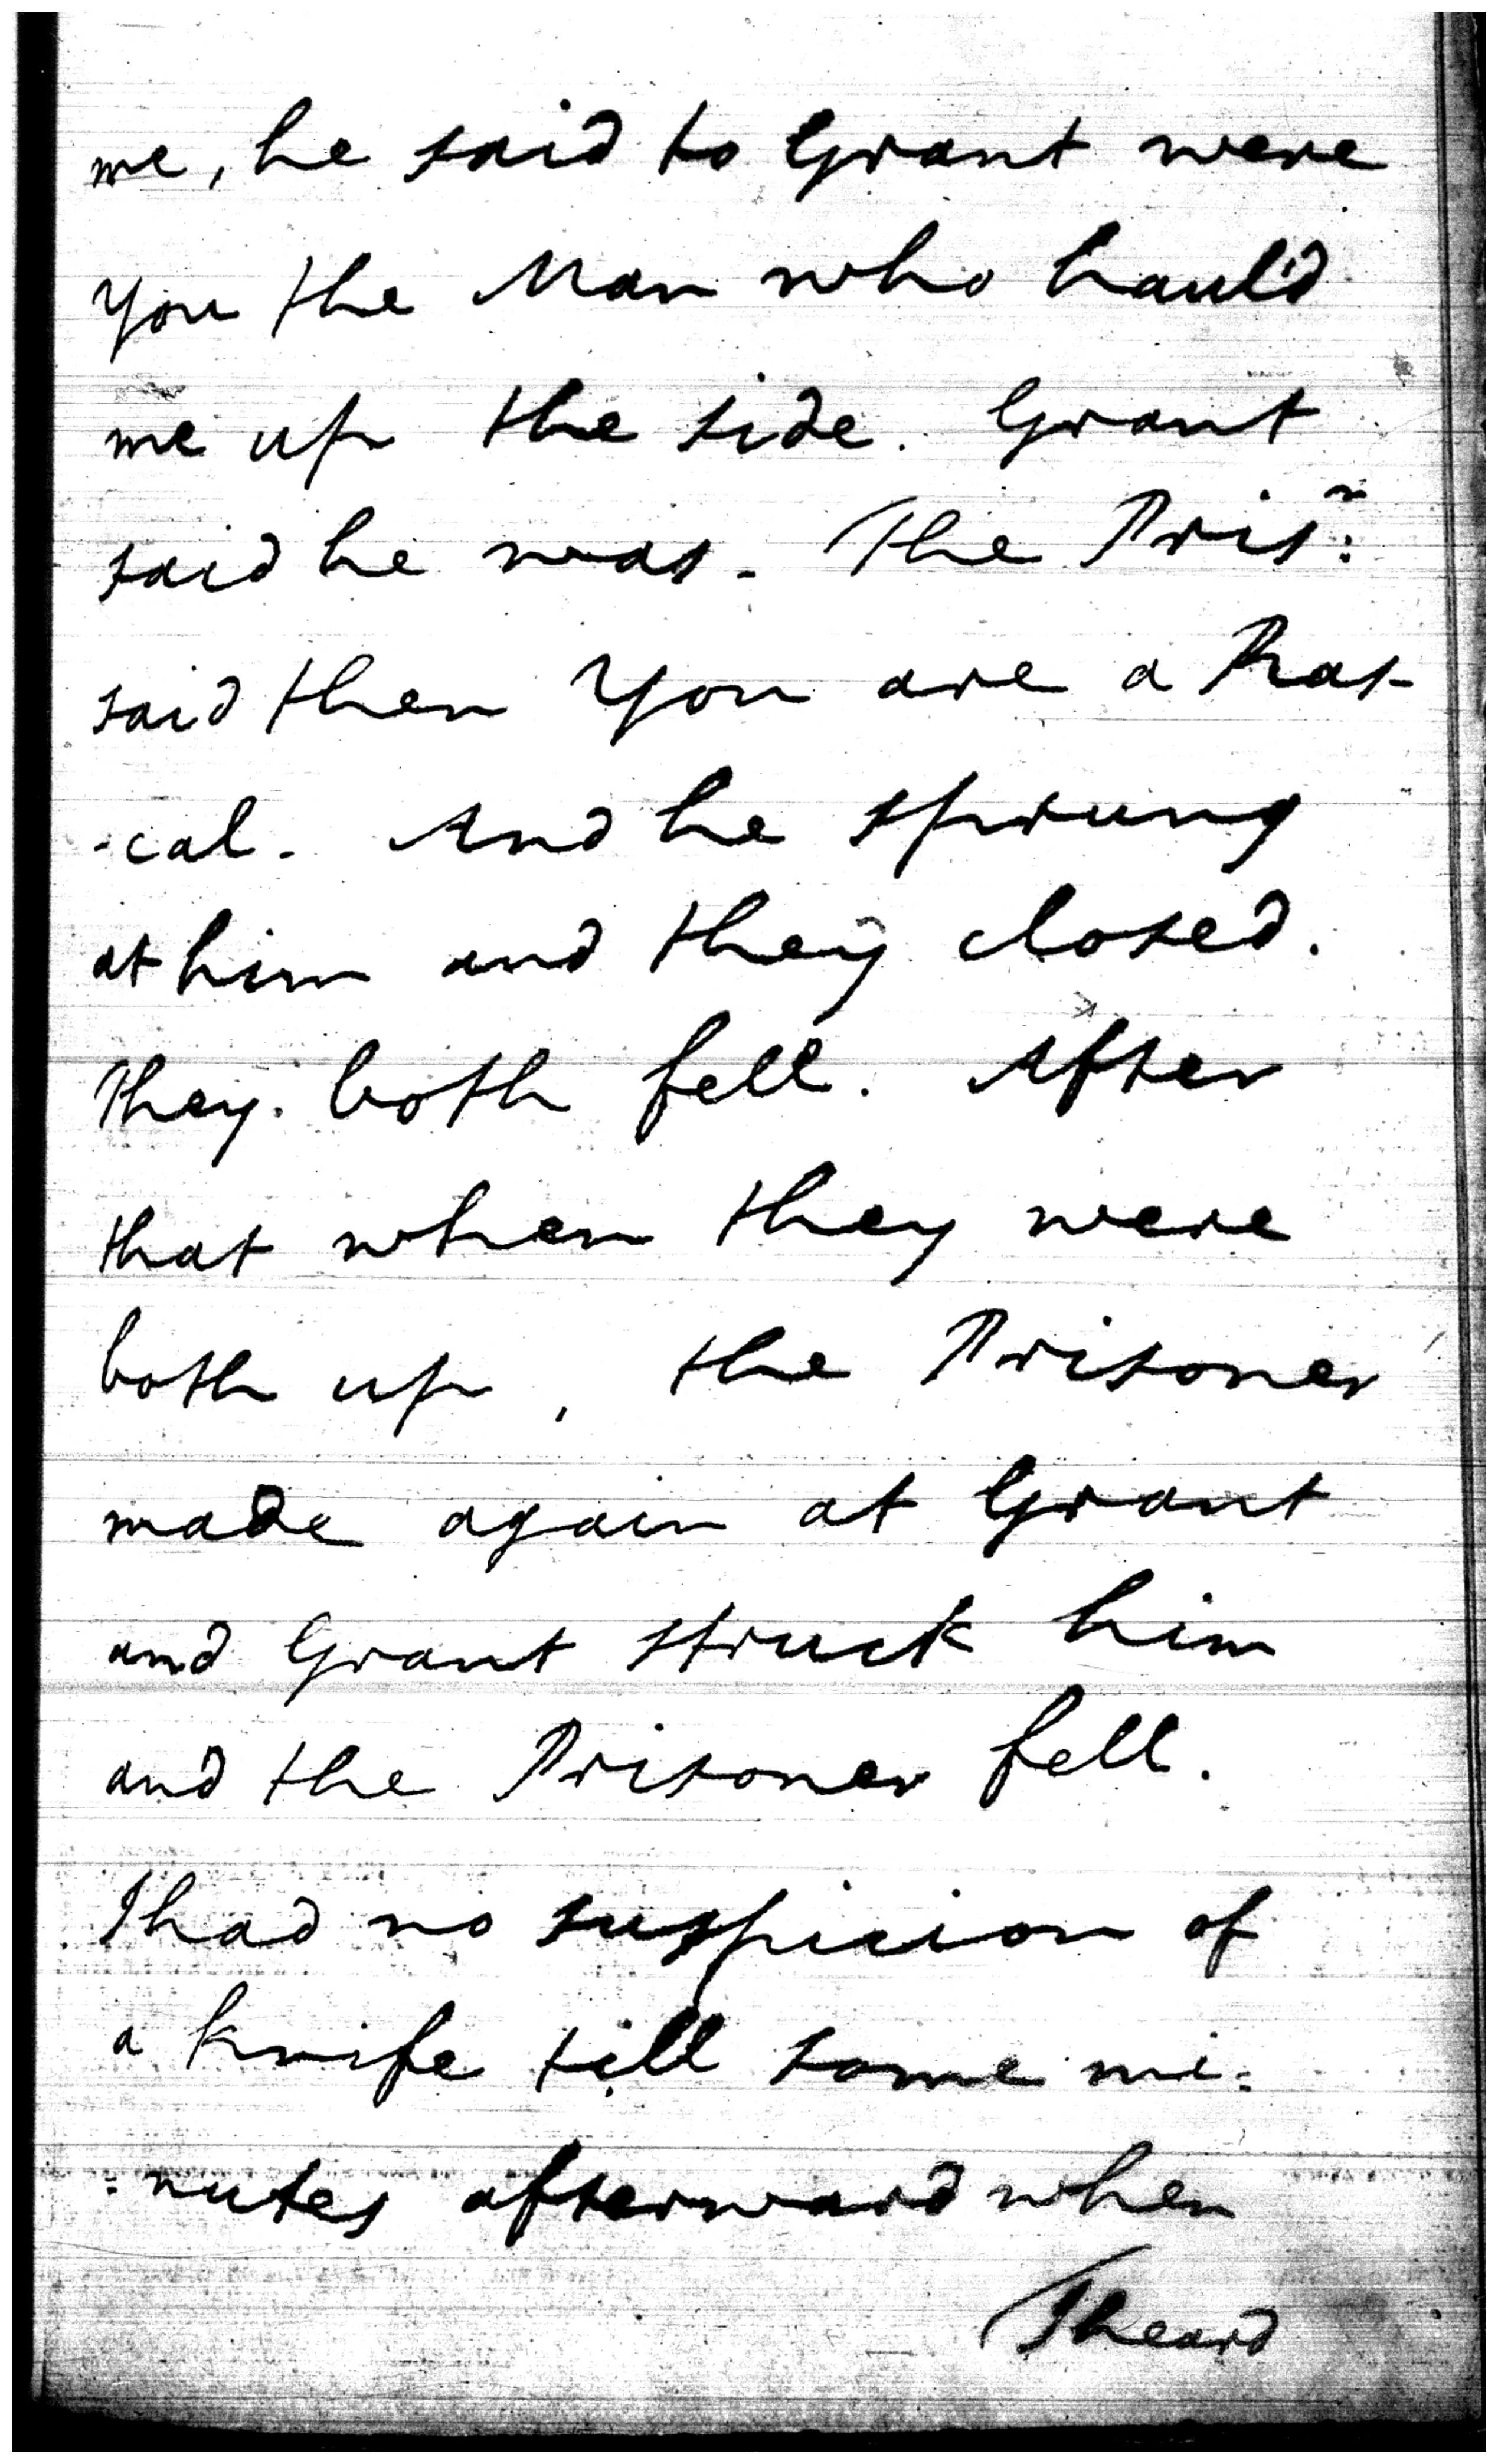 me, he said to Grant were
you the Man who haul'd
me up the side. Grant
said he was. The Pris.ʳ
said then You are a Ras-
-cal. And he sprung
at him and they closed.
They both fell. After
that when they were
both up, the Prisoner
made again at Grant
and Grant struck him
and the Prisoner fell.
I had no suspicion of
a knife till some mi:
:nutes afterward when
I heard